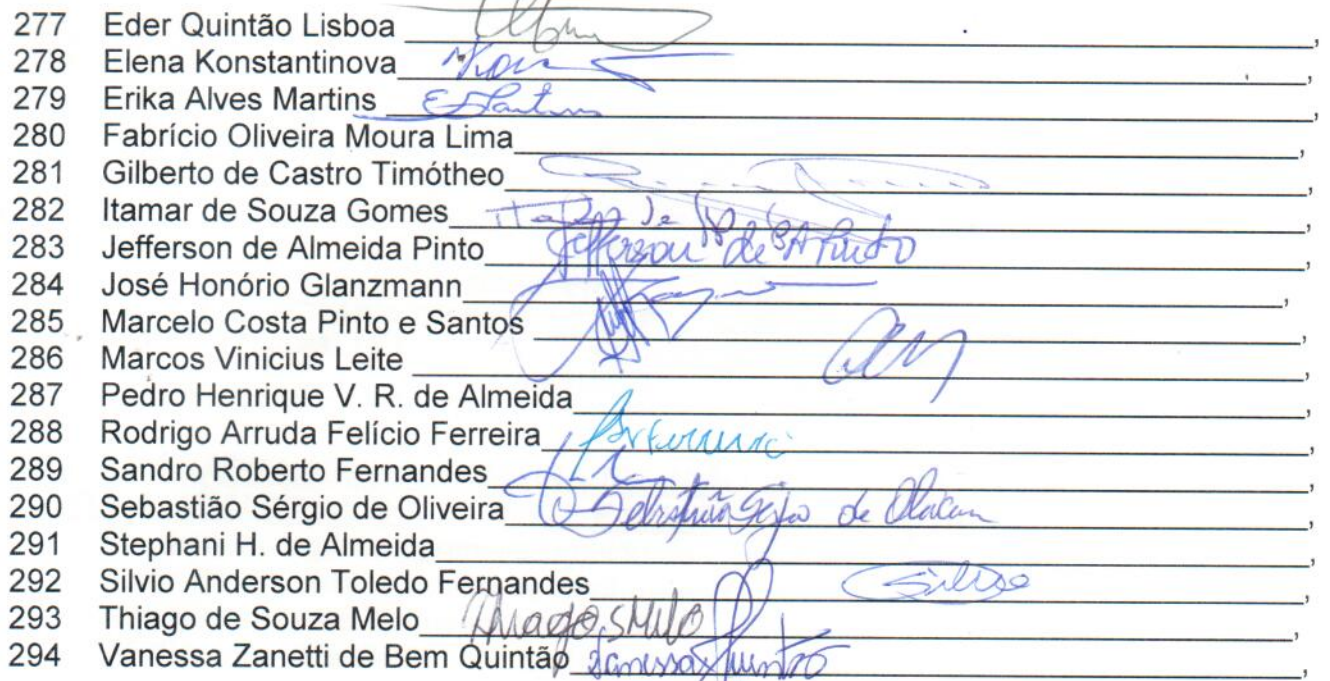 277 Eder Quintão Lisboa ,
278 Elena Konstantinova ,
279 Erika Alves Martins ,
280 Fabrício Oliveira Moura Lima ,
281 Gilberto de Castro Timótheo ,
282 Itamar de Souza Gomes ,
283 Jefferson de Almeida Pinto Jefferson de A Pinto ,
284 José Honório Glanzmann ,
285 Marcelo Costa Pinto e Santos ,
286 Marcos Vinicius Leite ,
287 Pedro Henrique V. R. de Almeida ,
288 Rodrigo Arruda Felício Ferreira ,
289 Sandro Roberto Fernandes ,
290 Sebastião Sérgio de Oliveira Sebastião Sérgio de ,
291 Stephani H. de Almeida ,
292 Silvio Anderson Toledo Fernandes ,
293 Thiago de Souza Melo Thiago S Melo ,
294 Vanessa Zanetti de Bem Quintão Vanessa Quintão ,